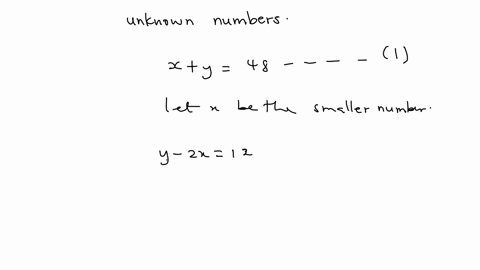 unknown numbers.
x + y = 48 - - - - (1)
let x be the smaller number.
y - 2x = 12